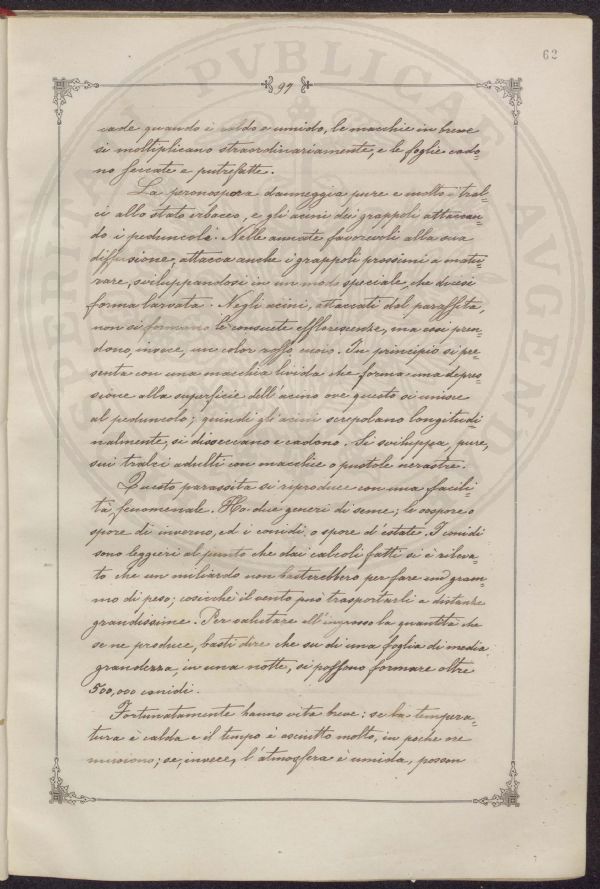 62
97
cade quando è caldo e umido, le macchie in breve
si moltiplicano straordinariamente, e le foglie cado-
no seccate e putrefatte.
La peronospora danneggia pure e molto i tral-
ci allo stato erbaceo, e gli acini dei grappoli attaccan-
do i peduncoli. Nelle annate favorevoli alla sua
diffusione, attacca anche i grappoli prossimi a matu-
rare, sviluppandosi in un modo speciale, che dicesi
forma larvata. Negli acini, attaccati dal parassita,
non si formano le consuete efflorescenze, ma essi pren-
dono, invece, un color rosso scuro. In principio si pre
senta con una macchia livida che forma una depres-
sione alla superficie dell'acino ove questo si unisce
al peduncolo; quindi gli acini screpolano longitudi
nalmente, si disseccano e cadono. Si sviluppa, pure,
sui tralci adulti con macchie o pustole nerastre.
Questo parassita si riproduce con una facili-
tà fenomenale. Ha due generi di seme; le oospore o
spore di inverno, ed i conidi o spore d'estate. I conidi
sono leggieri al punto che dai calcoli fatti si è rileva-
to che un miliardo non basterebbero per fare un gram-
mo di peso; cosicchè il vento può trasportarli a distanze
grandissime. Per valutare all'ingrosso la quantità che
se ne produce, basti dire che su di una foglia di media
grandezza, in una notte, si possono formare oltre
500,000 conidi.
Fortunatamente hanno vita breve: se la tempera-
tura è calda e il tempo è asciutto molto, in poche ore
muoiono; se, invece, l'atmosfera è umida, posson